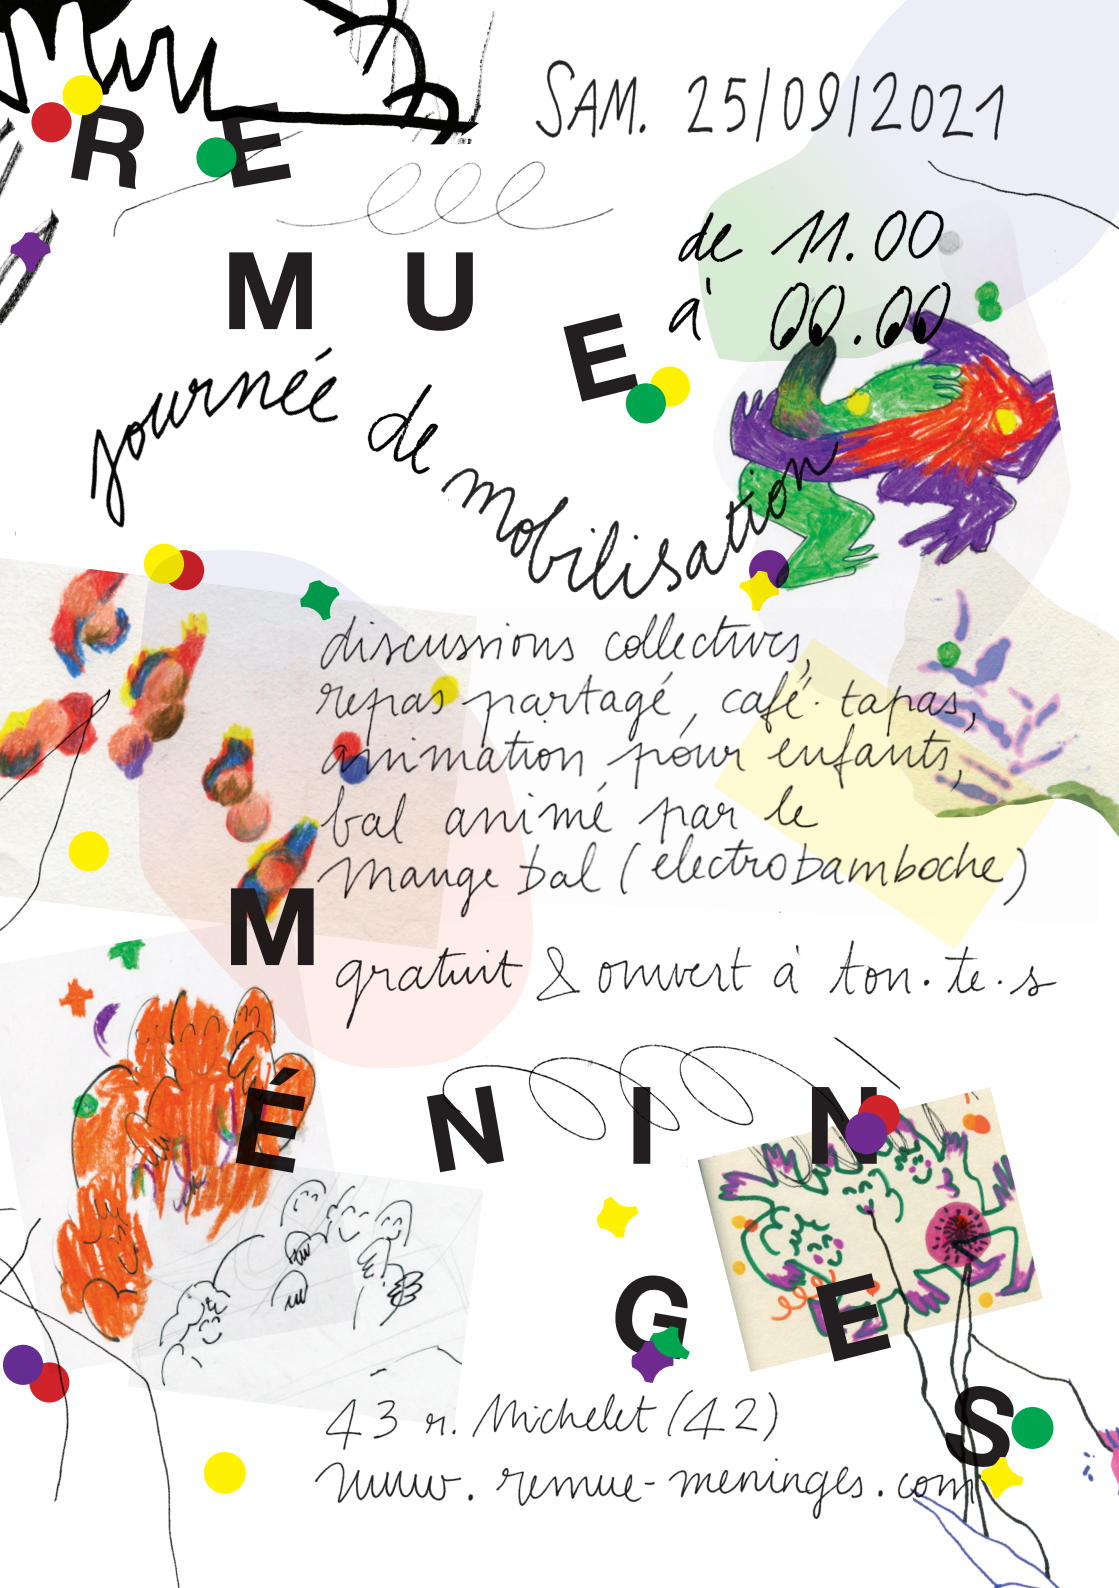 SAM. 25/09/2021
RE
de 11.00
à 00.00
MUE
journée de mobilisation
discussions collectives,
repas partagé, café. tapas,
animation pour enfants,
bal animé par le
mange bal (electrobamboche)
M
gratuit & ouvert à tou.te.s
ÉNIN
GES
43 r. Michelet (42)
www.remue-meninges.com